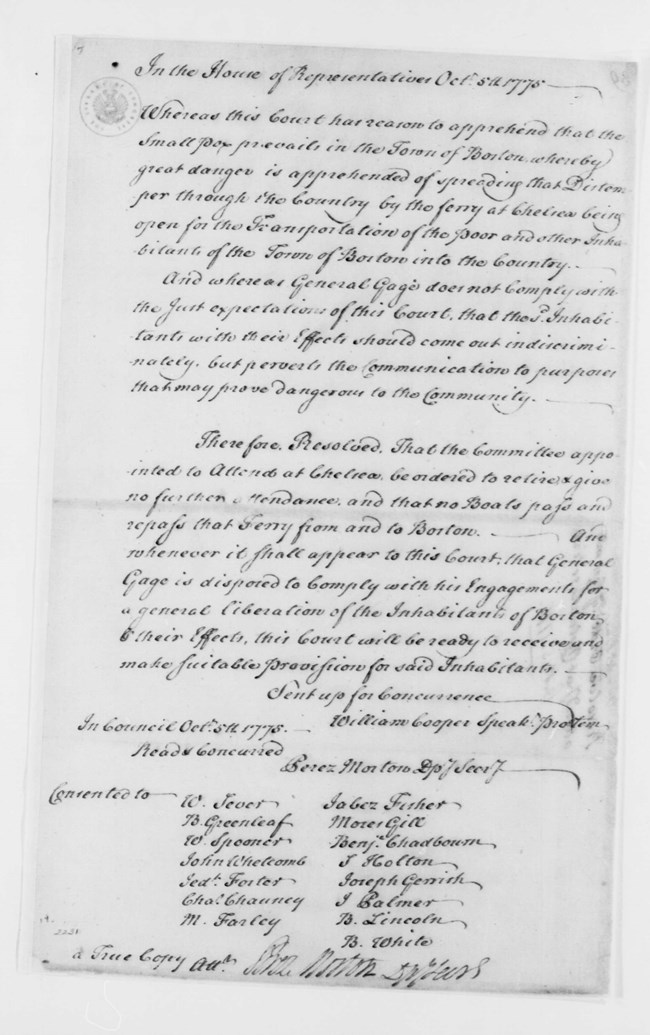 In the House of Representatives Octr. 5th 1775
Whereas this Court has reason to apprehend that the
Small Pox prevails in the Town of Boston, whereby
great danger is apprehended of spreeding that Distem-
per through the Country by the ferry at Chelsea being
open for the Transportation of the Poor and other Inha-
bitants of the Town of Boston into the Country. —
And whereas General Gage does not Comply with
the Just expectations of this Court, that the sd. Inhabi-
tants with their Effects should come out indiscrimi-
nately. but perverts the Communication to purposes
that may prove dangerous to the Community. —
Therefore, Resolved, That the Committee appo-
inted to Attend at Chelsea, be ordered to retire & give
no further attendance, and that no Boats pass and
repass that Ferry from and to Boston. — And
whenever it shall appear to this Court, that General
Gage is disposed to Comply with his Engagements for
a general liberation of the Inhabitants of Boston
& their Effects, this Court will be ready to receive and
make suitable Provission for said Inhabitants. —
Sent up for Concurrence
William Cooper Speakr. Protem
In Council Octr. 5th 1775. —
Read & Concurred
Perez Morton Dpy Secry
Consented to
W. Sever Jabez Fisher
B. Greenleaf Moses Gill
W. Spooner Benja. Chadbourn
John Whetcomb J Holton
Jedh. Foster Joseph Gerrish
Chas. Chauncy J Palmer
M. Farley B. Lincoln
B. White
2231
a True Copy Attr. Perez Morton Dpy Secry